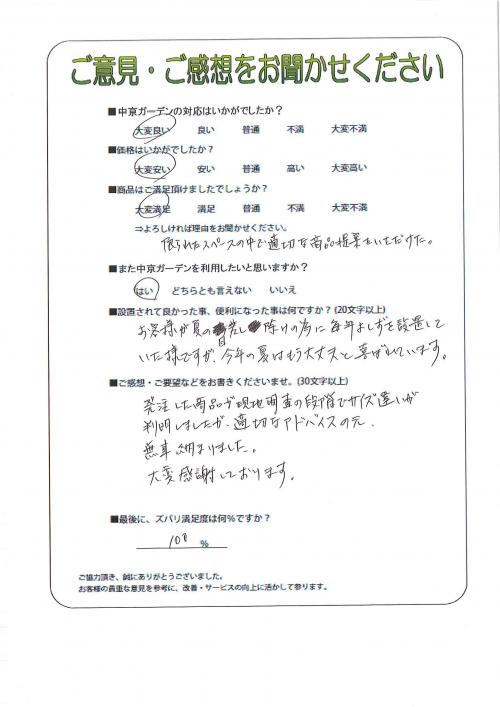 ご意見・ご感想をお聞かせください
■中京ガーデンの対応はいかがでしたか？
大変良い 良い 普通 不満 大変不満
■価格はいかがでしたか？
大変安い 安い 普通 高い 大変高い
■商品はご満足頂けましたでしょうか？
大変満足 満足 普通 不満 大変不満
⇒よろしければ理由をお聞かせください。
限られたスペースの中で適切な商品提案をいただけた。
■また中京ガーデンを利用したいと思いますか？
はい どちらとも言えない いいえ
■設置されて良かった事、便利になった事は何ですか？(20文字以上)
お客様が夏の日差し除けの為に毎年よしずを設置して
いた様ですが、今年の夏はもう大丈夫と喜ばれています。
■ご感想・ご要望などをお書きくださいませ。(30文字以上)
発注した商品が現地調査の段階でサイズ違いが
判明しましたが、適切なアドバイスの元、
無事納まりました。
大変感謝しております。
■最後に、ズバリ満足度は何％ですか？
100 ％
ご協力頂き、誠にありがとうございました。
お客様の貴重な意見を参考に、改善・サービスの向上に活かして参ります。